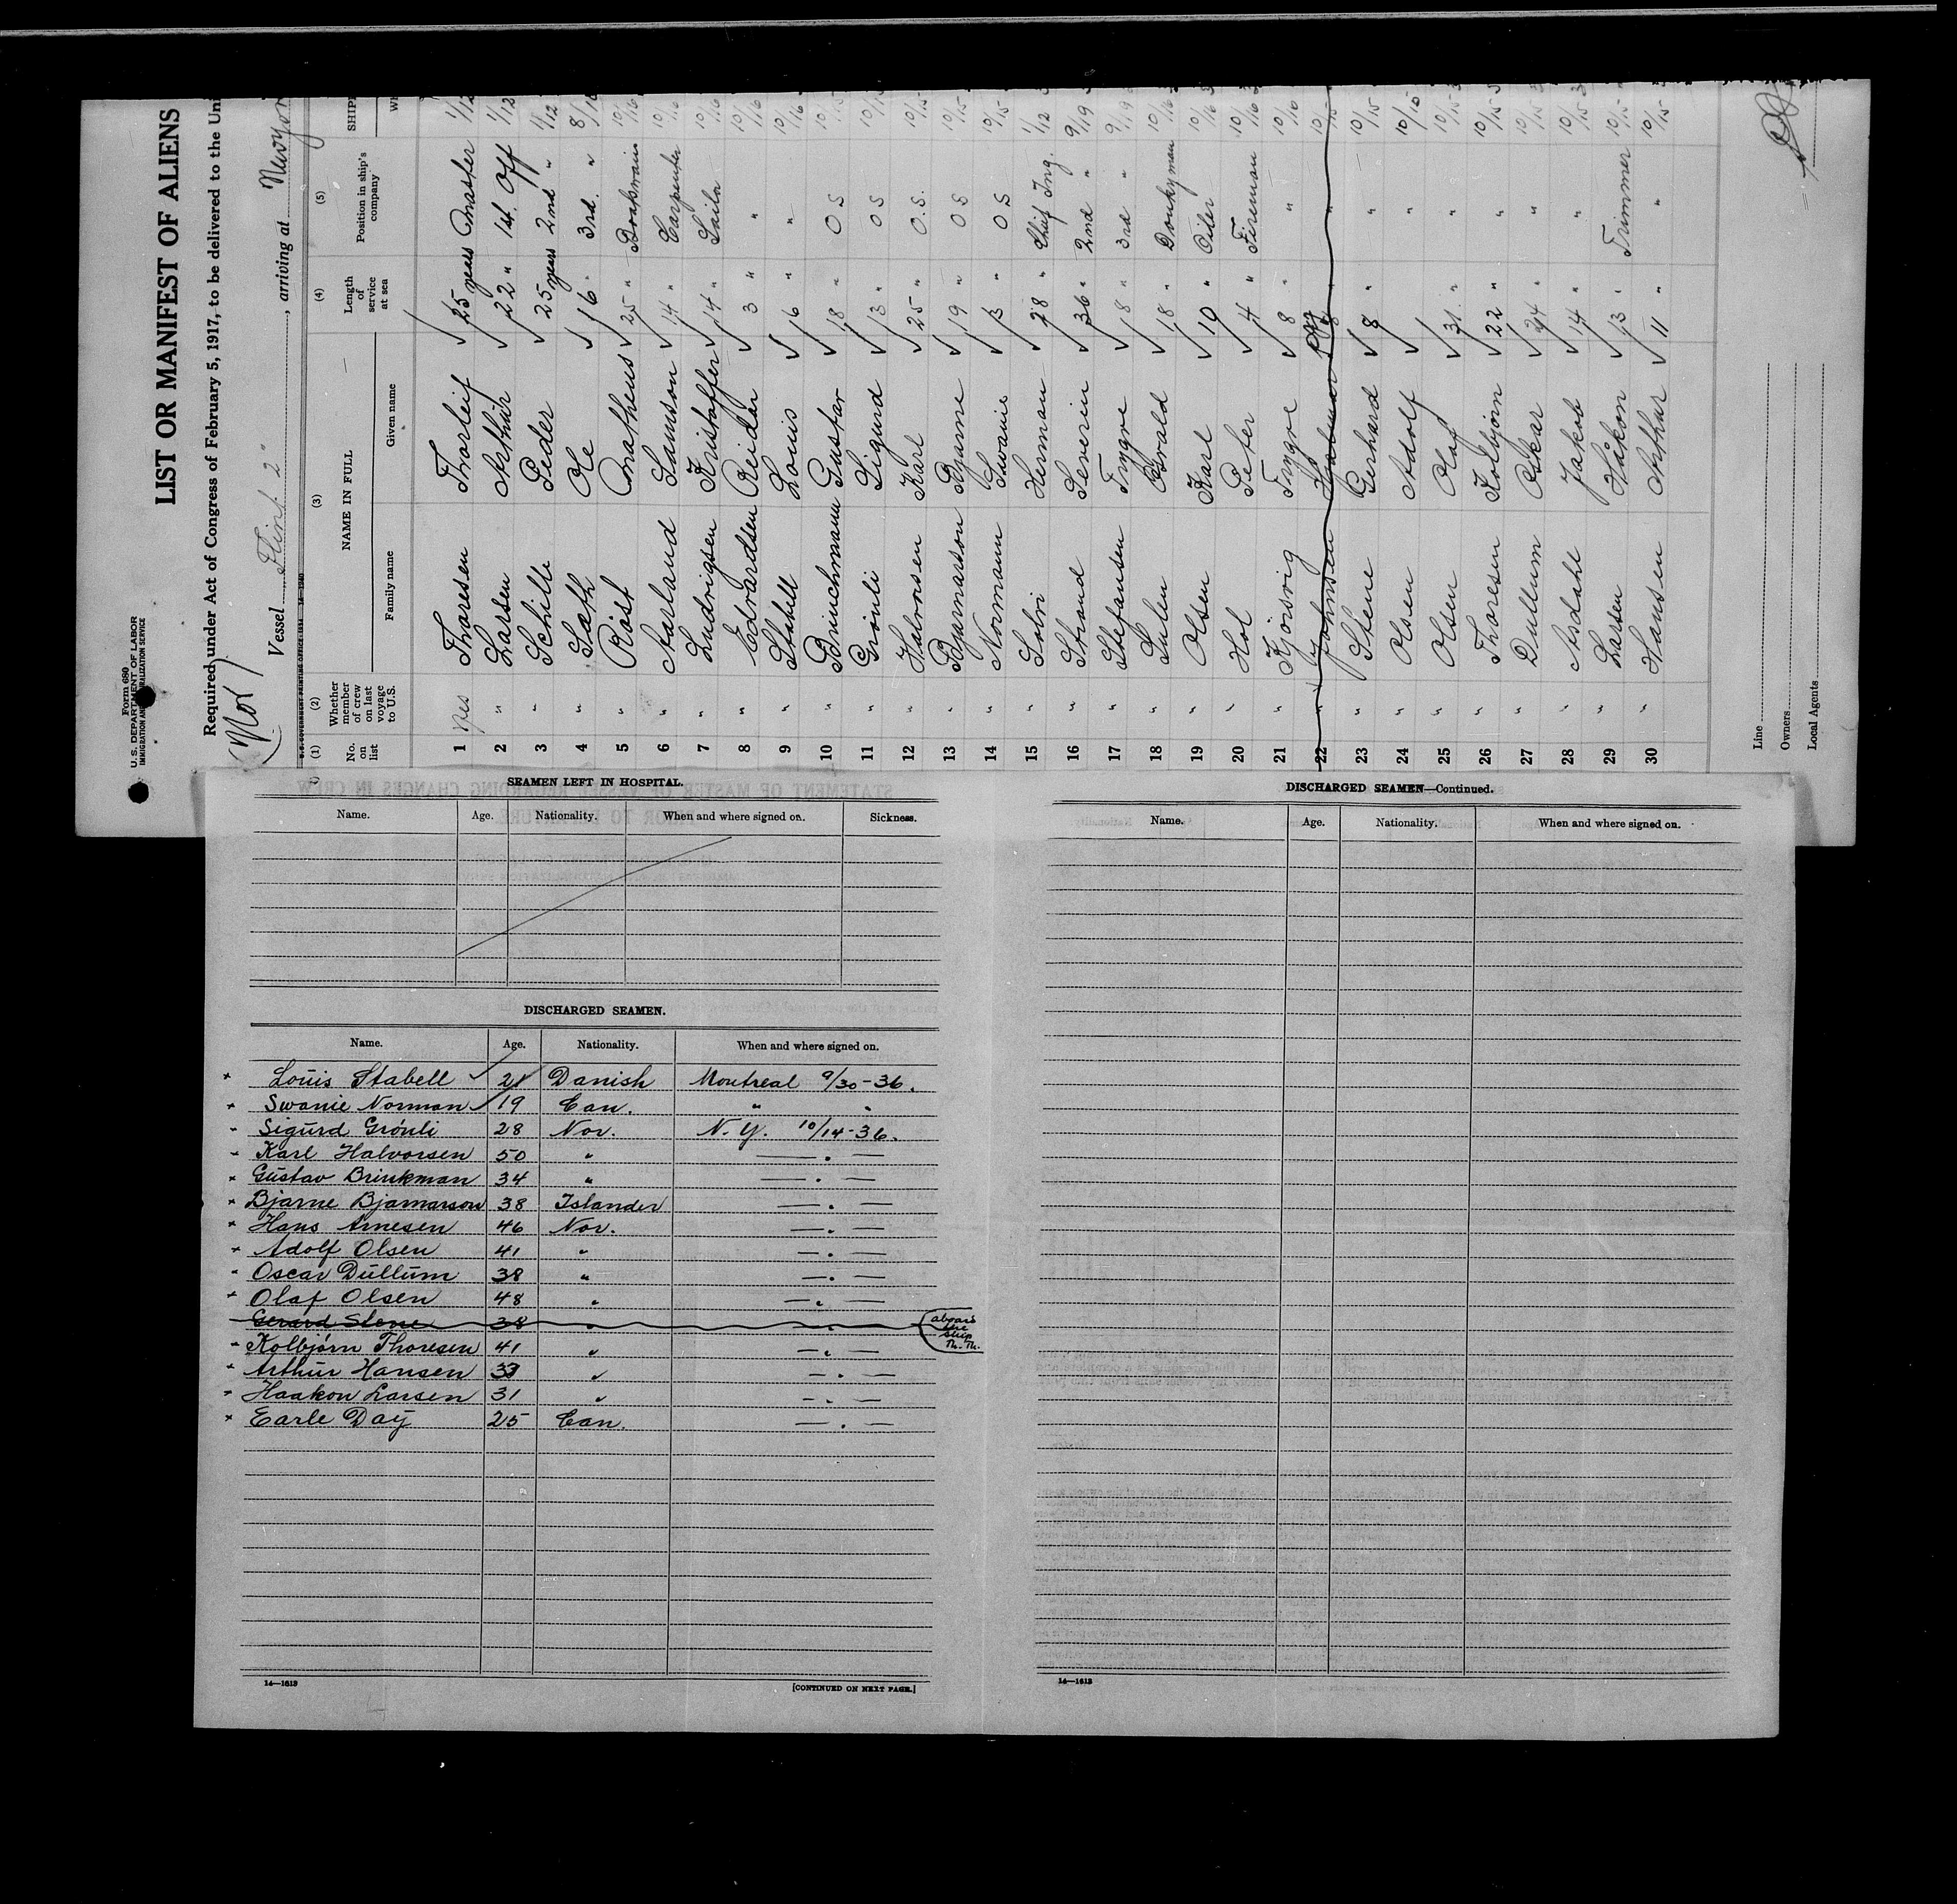 Form 680
U. S. DEPARTMENT OF LABOR
IMMIGRATION AND NATURALIZATION SERVICE
LIST OR MANIFEST OF ALIENS
Required under Act of Congress of February 5, 1917, to be delivered to the Uni
(Nor)
Vessel Flint 2", arriving at Newyor
(1) (2) (3) (4) (5)
No. on list Whether member of crew on last voyage to U.S. NAME IN FULL Family name Given name Length of service at sea Position in ship's company SHIPP
1 yes Thoresen Thorleif 25 years Master 1/12
2 " Larsen Arthur 22 " 1st. Off 1/12
3 " Schille Peder 25 years 2nd " 1/12
4 " Sæth Ole 16 " 3rd. " 8/18
5 " Röst Matheus 25 " Boatswain 10/16
6 " Aarland Samson 14 " Carpenter 10/16
7 " Ludvigsen Kristoffer 14 " Sailor 10/16
8 " Edvardsen Reidar 3 " " 10/16
9 " Stabell Louis 16 " " 10/16
10 " Brinchmann Gustav 18 " O S 10/15
11 " Grönli Sigurd 13 " O S 10/15
12 " Halvorsen Karl 25 " O.S. 10/15
13 " Bjarnarson Bjarne 19 " O S 10/15
14 " Normann Swanie 13 " O S 10/15
15 " Solvi Herman 28 " Chief Ing. 1/12
16 " Strand Severin 36 " 2nd " 9/19
17 " Stefansen Trygve 18 " 3rd " 9/19
18 " Sulen Osvald 18 " Donkyman 10/16
19 " Olsen Karl 19 " Oiler 10/16
20 " Hol Peter 4 " Fireman 10/16
21 " Kjösvig Trygve 8 " " 10/16
22 " Johnsen Hjalmar 8 " 10/15
23 " Stene Gerhard 8 " " 10/15
24 " Olsen Adolf " 10/15
25 " Olsen Olaf 31 " " 10/15
26 " Thoresen Kolbjörn 22 " " 10/15
27 " Dullum Oskar 24 " " 10/15
28 " Asdahl Jakob 14 " " 10/15
29 " Larsen Håkon 13 " Trimmer 10/15
30 " Hansen Arthur 11 " " 10/15
Line
Owners
Local Agents
SEAMEN LEFT IN HOSPITAL.
Name. Age. Nationality. When and where signed on. Sickness.
DISCHARGED SEAMEN.
Name. Age. Nationality. When and where signed on.
Louis Stabell 21 Danish Montreal 9/30-36.
Swanie Norman 19 Can. " "
Sigurd Grönli 28 Nor. N. Y. 10/14-36.
Karl Halvorsen 50 " — . —
Gustav Brinkman 34 " — . —
Bjarne Bjarnarson 38 Islander — . —
Hans Arnesen 46 Nor. — . —
Adolf Olsen 41 " — . —
Oscar Dullum 38 " — . —
Olaf Olsen 48 " — . —
Gerard Stene 38 " — . — aboard the ship Th. Th.
Kolbjörn Thoresen 41 " — . —
Arthur Hansen 33 " — . —
Haakon Larsen 31 " — . —
Earle Day 25 Can. — . —
14—1613
[CONTINUED ON NEXT PAGE.]
DISCHARGED SEAMEN—Continued.
Name. Age. Nationality. When and where signed on.
14—1613